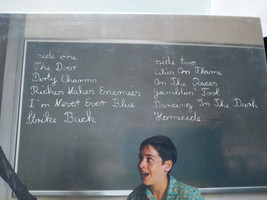 side one
The Door
Dirty Charms
Riches Makes Enemies
I'm Never Ever Blue
Strike Back
side two
Cities On Flame
On The Races
Gamblin' Fool
Dancing In The Dark
Homicide